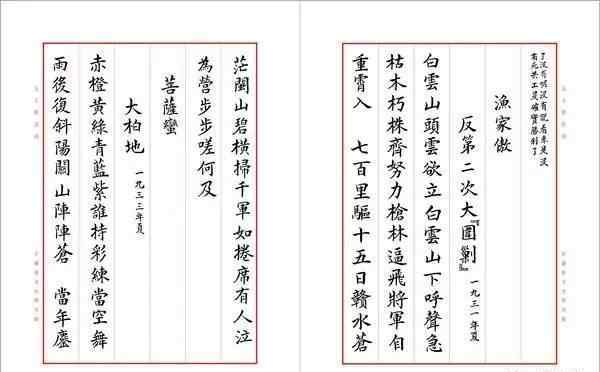 了沒有呢沒有說看來是沒
有死共工是確實勝利了
漁家傲
反第二次大『圍剿』 一九三一年夏
白雲山頭雲欲立白雲山下呼聲急
枯木朽株齊努力槍林逼飛將軍自
重霄入 七百里驅十五日贛水蒼
茫閩山碧橫掃千軍如捲席有人泣
為營步步嗟何及
菩薩蠻
大柏地 一九三三年夏
赤橙黃綠青藍紫誰持彩練當空舞
雨後復斜陽關山陣陣蒼 當年鏖